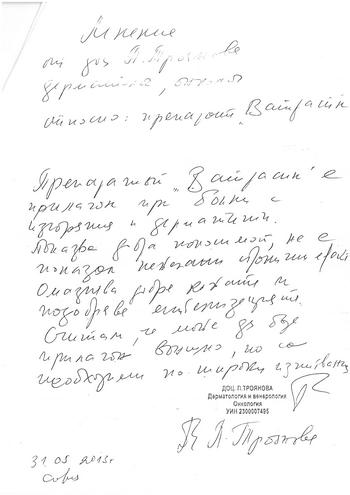 Мнение
от доц. П. Троянова
дерматолог, онколог
относно: препарат „Вайтрасин
Препаратът „Вайтрасин" е
прилаган при болни с
изгаряния и дерматити.
Показва добра поносимост, не е
показал нежелани странични ефекти
Омазнява добре кожата и
подобрява епителизацията.
Считам, че може да бъде
прилаган външно, но са
необходими по-широки изпитвания
ДОЦ. П.ТРОЯНОВА
Дерматология и венерология
Онкология
УИН 2300007495
П. Троянова
31 05 2013г
София